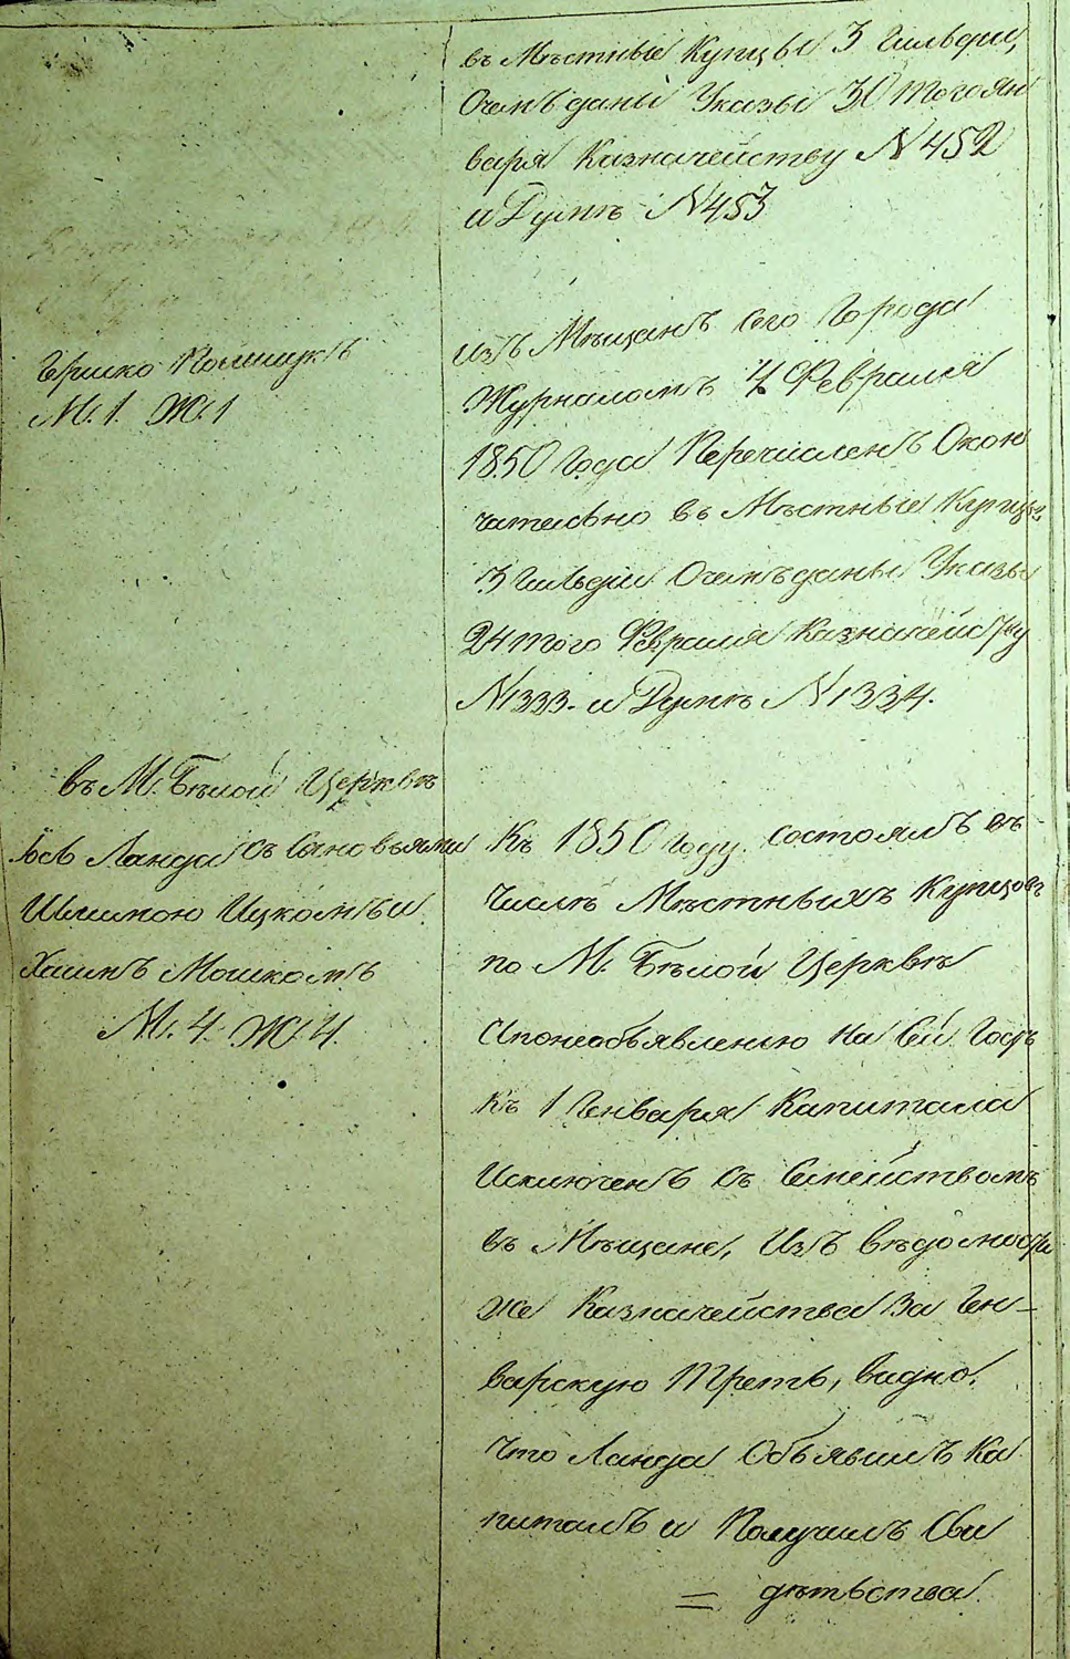 въ Мѣстные Купцы 3 Гильдіи,
О чемъ даны Указы 30 того Ян
варя Казначейству N 452
и Думѣ N 453
Гершко
М. 1. Ж. 1
изъ Мѣщанъ сего Города
Журналомъ 4 Февраля
1850 Года Перечисленъ Окон
чательно въ Мѣстные Купцы
3 Гильдіи О чемъ даны Указы
24 того Февраля Казначейству
N 1333. и Думѣ N 1334.
въ М. Бѣлой Церквѣ
Іось Ланда съ Сыновьями
Шлиомою Ицкомъ и
Хаимъ Мошкомъ
М. 4. Ж. 4.
Къ 1850 Году состоялъ въ
Числѣ Мѣстныхъ Купцовъ
по М. Бѣлой Церквѣ
И по необъявленію на Сей Годъ
къ 1 Генваря Капитала
Исключенъ съ Семействомъ
въ Мѣщане, Изъ вѣдомости
же Казначейства За Ген-
варскую Треть, видно.
Что Ланда Объявилъ Ка
питалъ и Получилъ Сви
= дѣтьства